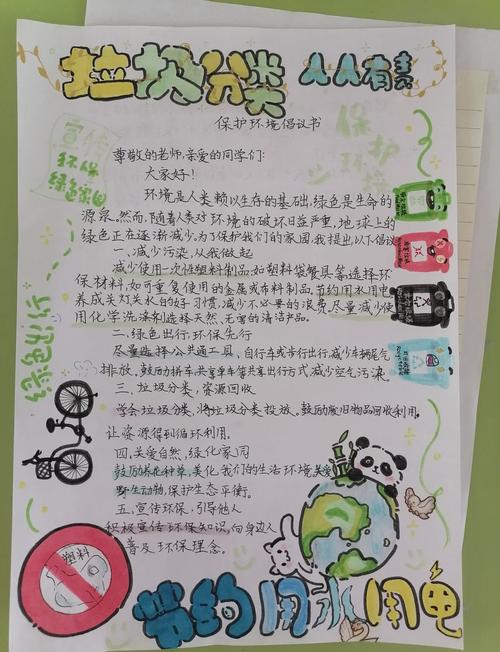 垃圾分类 人人有责
保护环境倡议书
宣传
环保
绿色家园
保护
环境
尊敬的老师,亲爱的同学们:
大家好!
环境是人类赖以生存的基础,绿色是生命的
源泉。然而,随着人类对环境的破坏日益严重,地球上的
绿色正在逐渐减少。为了保护我们的家园,我提出以下倡议
一、减少污染,从我做起
减少使用一次性塑料制品,如塑料袋餐具等。选择环
保材料,如可重复使用的金属或布料制品。节约用水用电
养成关灯关水的好习惯,减少不必要的浪费。尽量减少使
用化学洗涤剂选择天然、无害的清洁产品。
二、绿色出行,环保先行
尽量选择公共通工具,自行车或步行出行,减少车辆尾气
排放。鼓励拼车共享单车等共享出行方式减少空气污染。
三、垃圾分类,资源回收
学会垃圾分类,将垃圾分类投放。鼓励废旧物品回收利用。
让资源得到循环利用。
四、关爱自然,绿化家园
鼓励养花种草,美化我们的生活环境关爱
野生动物,保护生态平衡。
五、宣传环保,引导他人
积极宣传环保知识,向身边人
普及环保理念。
绿色出行
塑料
节约用水用电